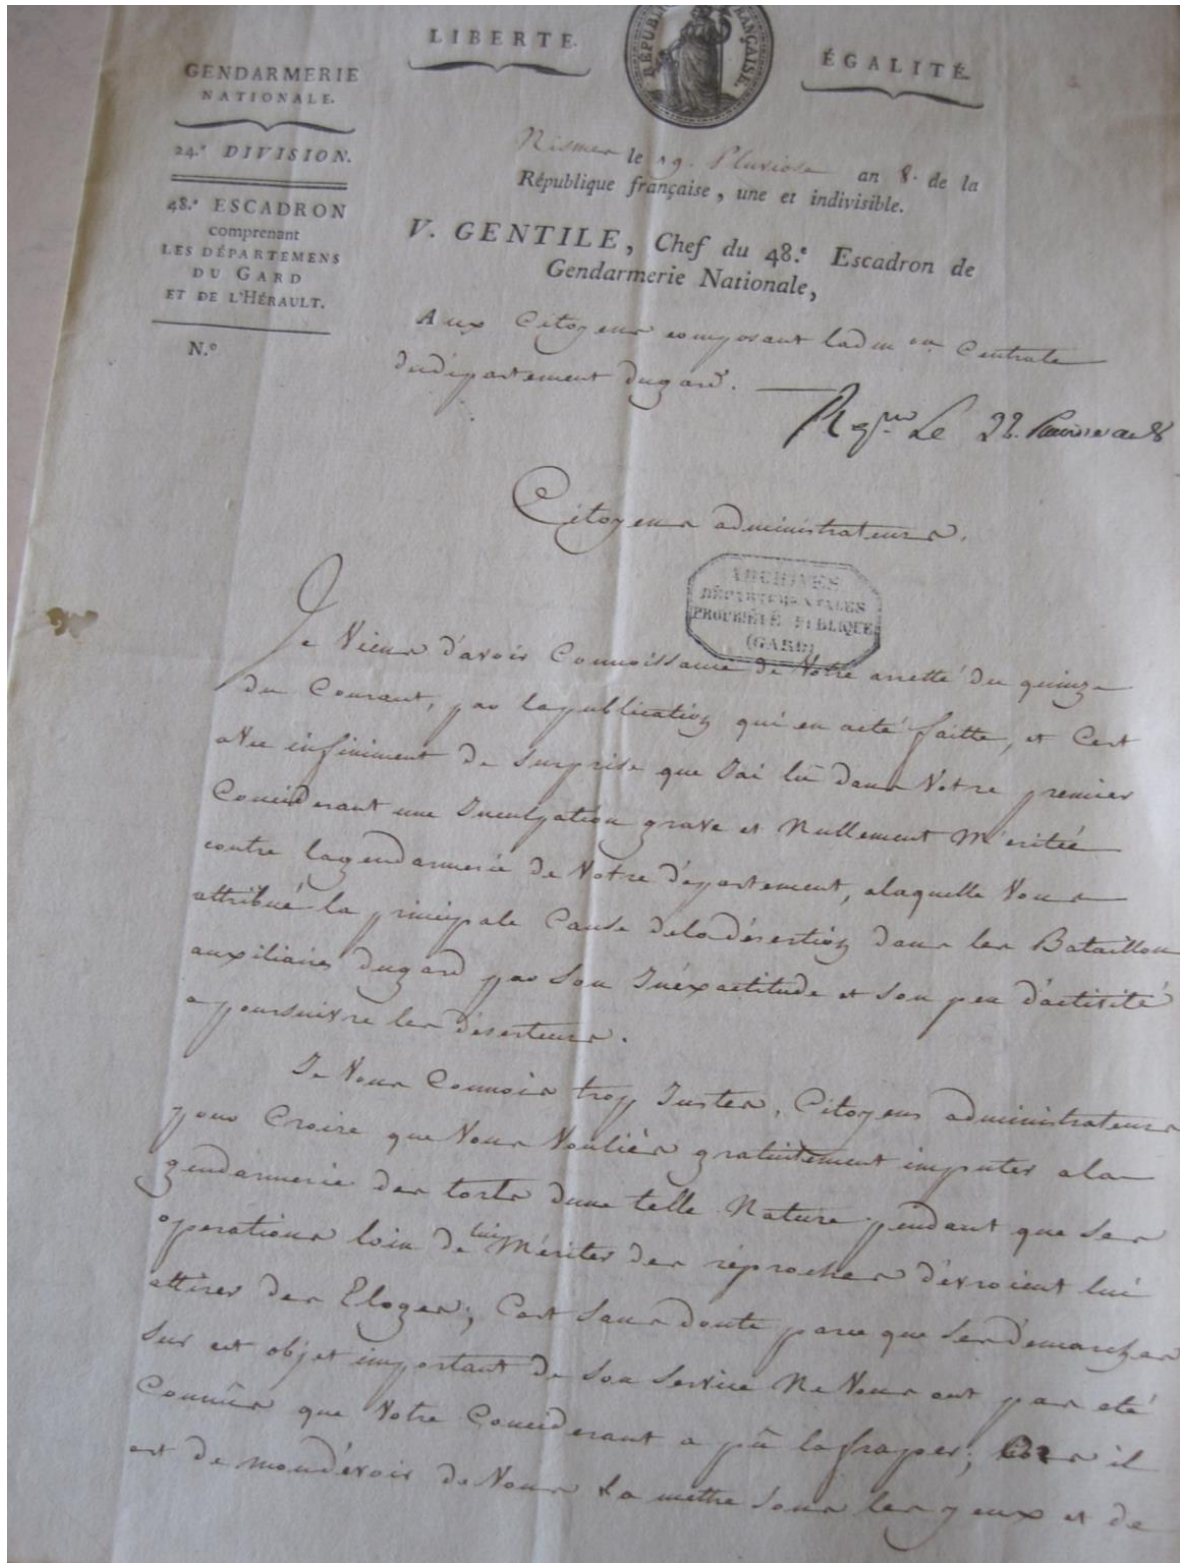 LIBERTÉ
RÉPUBLIQUE FRANÇAISE.
ÉGALITÉ
GENDARMERIE
NATIONALE.
24.e DIVISION.
48.e ESCADRON
comprenant
LES DÉPARTEMENS
DU GARD
ET DE L'HÉRAULT.
N.o
Nismes le 19. Pluviose an 8. de la
République française, une et indivisible.
V. GENTILE, Chef du 48.e Escadron de
Gendarmerie Nationale,
Aux Citoyens composant ladm on Centrale
dudépartement dugard.
Le 22. an 8
Citoyens administrateurs.
ARCHIVES
DÉPARTEMENTALES
PROPRIÉTÉ PUBLIQUE
(GARD)
Je Viens d'avoir Connoissance de Votre arretté du quinze
du Courant, par lapublication qui en aeté faitte, et Cest
avec infiniment de surprise que Jai lû dans Votre premier
Considerant une Inculpation grave et Nullement Méritée
contre lagendarmerie de Votre département, alaquelle Vous
attribué la principale Cause deladésertion dans les Bataillons
auxiliaires dugard par Son Inéxactitude et Son peu d'activité
a poursuivre les déserteurs.
Je Vous Connois trop Justes, Citoyens administrateurs
pour Croire que Vous Vouliés gratuitement imputer ala
gendarmerie des torts dune telle Nature pendant que Ses
operations loin de lui Mériter des réproches dévroient lui
attirer des Eloges; Cest Sans doute parce que Ses démarches
Sur cet objet important de Son Service Ne Vous ont pas eté
Connûes que Votre Considerant a pû lafraper; il
est de mondévoir de Vous La mettre Sous les yeux et de